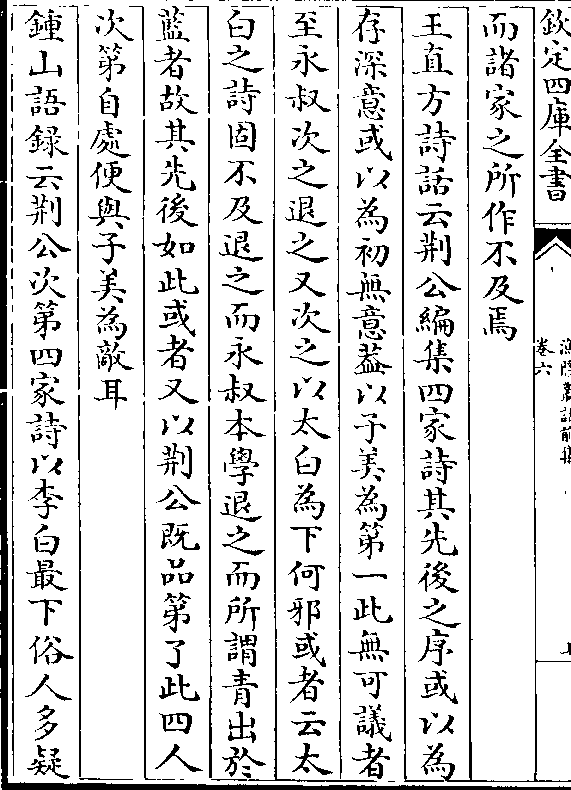 欽定四庫全書
漁隱叢話前集
卷六
而諸家之所作不及焉
王直方詩話云荆公編集四家詩其先後之序或以為
存深意或以為初無意葢以子美為第一此無可議者
至永叔次之退之又次之以太白為下何邪或者云太
白之詩固不及退之而永叔本學退之而所謂青出於
藍者故其先後如此或者又以荆公既品第了此四人
次第自處便與子美為敵耳
鍾山語録云荆公次第四家詩以李白最下俗人多疑